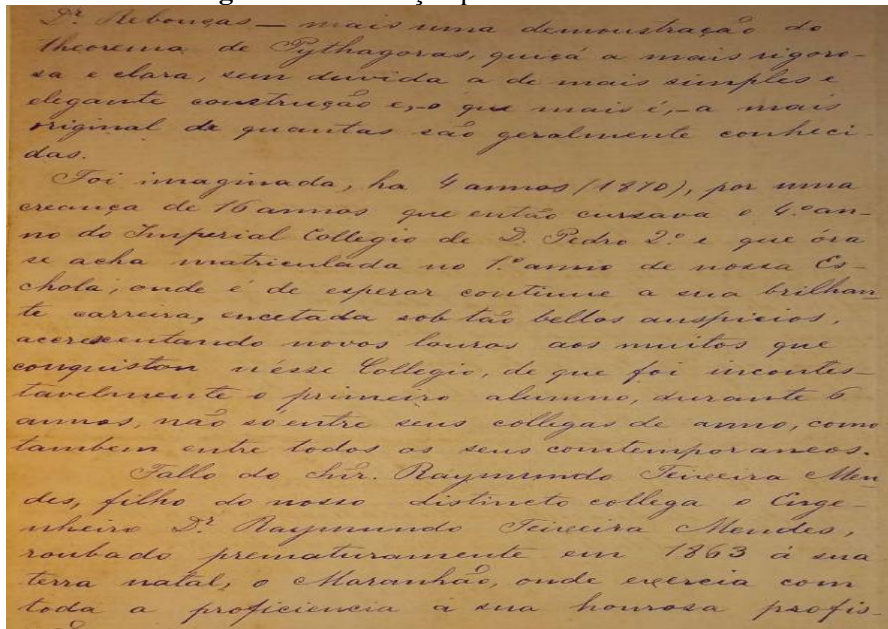 Dr. Rebouças — mais uma demonstração do
theorema de Pythagoras, quiçá a mais rigoro-
sa e clara, sem duvida a de mais simples e
elegante construcção e,-o que mais é,-a mais
original de quantas são geralmente conheci-
das.
Foi imaginada, ha 4 annos (1870), por uma
creança de 16 annos que então cursava o 4.º an-
no do Imperial Collegio de D. Pedro 2.º e que óra
se acha matriculada no 1.º anno de nossa Es-
chola; onde é de esperar continue a sua brilhan-
te carreira, encetada sob tão bellos auspicios,
accrescentando novos louros aos muitos que
conquistou n'ésse Collegio, de que foi incontes-
tavelmente o primeiro alumno, durante 6
annos, não so entre seus collegas de anno, como
tambem entre todos os seus contemporaneos.
Fallo do Snr. Raymundo Teixeira Men-
des, filho do nosso distincto collega o Enge-
nheiro Dr. Raymundo Teixeira Mendes,
roubado prematuramente em 1863 á sua
terra natal, o Maranhão, onde exercia com
toda a proficiencia a sua honrosa profis-